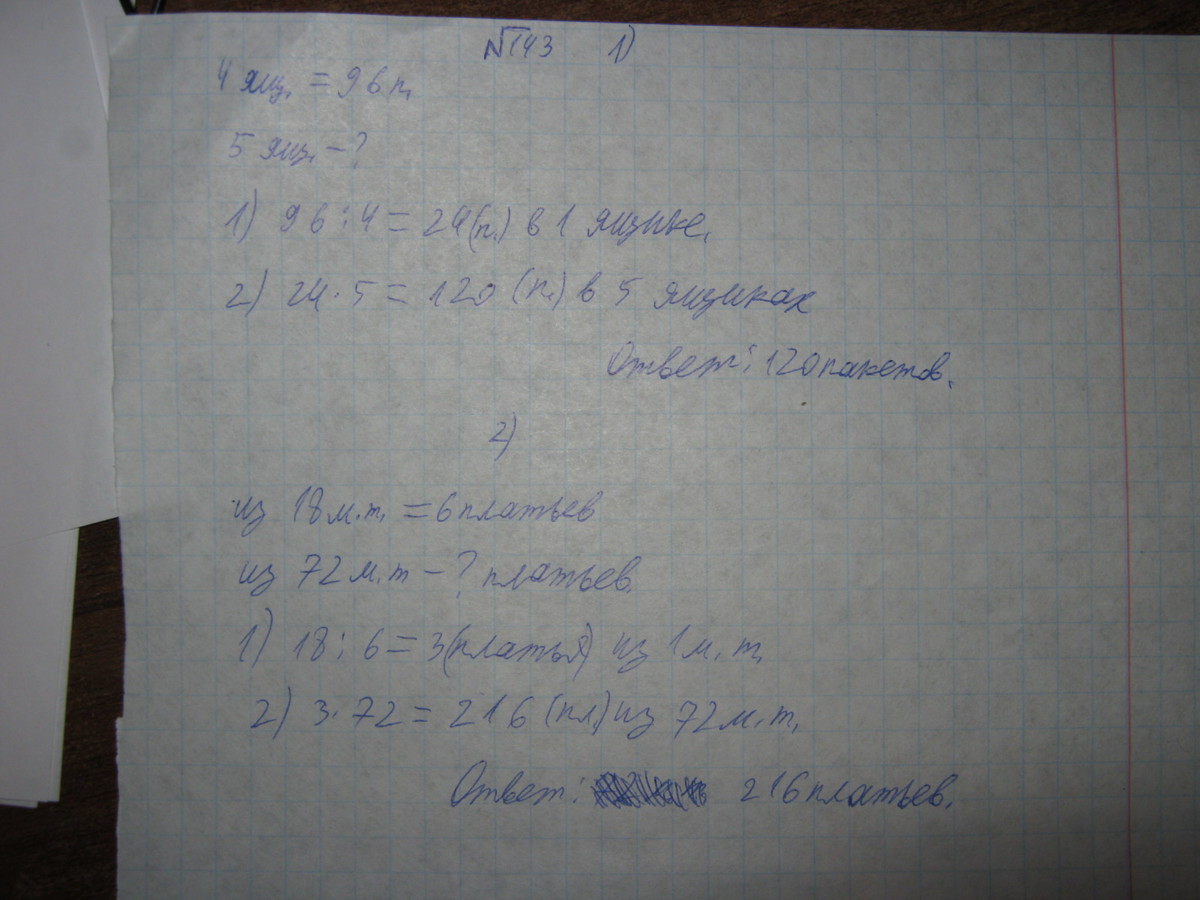 №143 1)
4 ящ. = 96 п.
5 ящ. - ?
1) 96 : 4 = 24 (п.) в 1 ящике.
2) 24 · 5 = 120 (п.) в 5 ящиках
Ответ: 120 пакетов.
2)
из 18 м.т. = 6 платьев
из 72 м.т - ? платьев.
1) 18 : 6 = 3 (платья) из 1 м.т.
2) 3 · 72 = 216 (пл) из 72 м.т.
Ответ: 216 платьев.